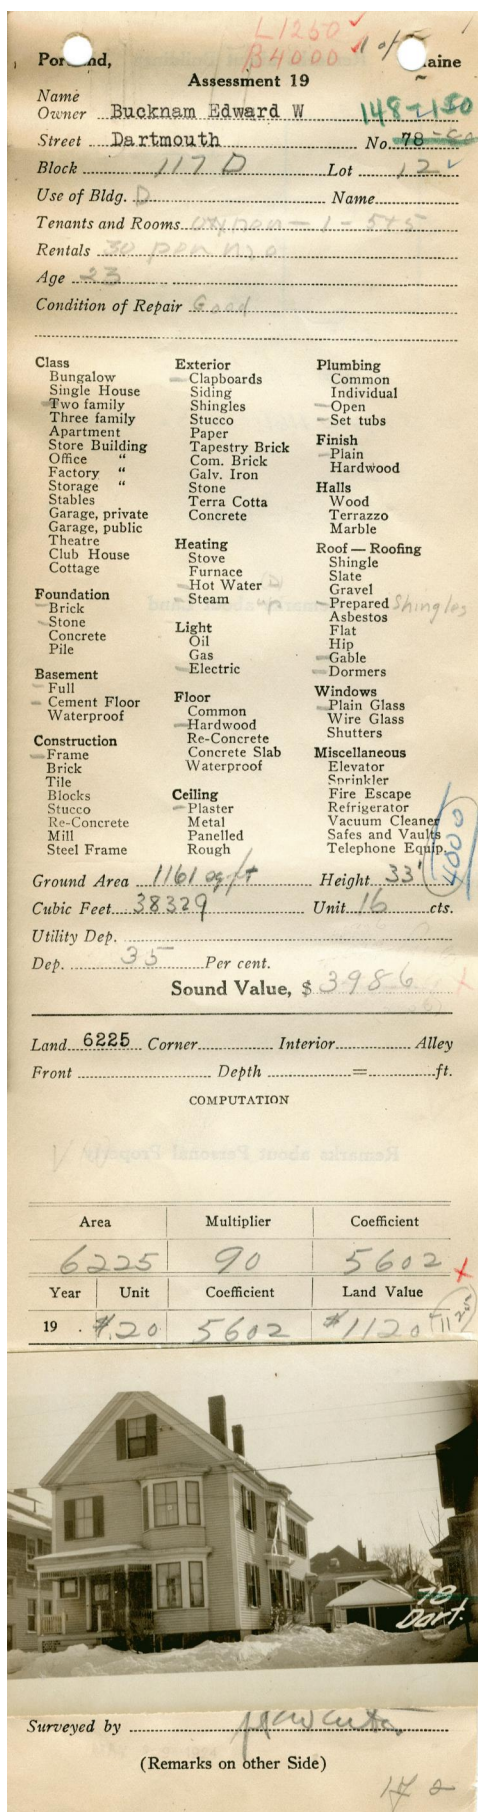 L1250 ✓
B4000 ✓ 1 of
Portland, Maine
Assessment 19
Name
Owner Bucknam Edward W 148-150
Street Dartmouth No. 78-80
Block 117 D Lot 12 ✓
Use of Bldg. D Name
Tenants and Rooms 1 - 5+5
Rentals 30 per mo
Age 23
Condition of Repair Good
Class
Bungalow
Single House
Two family
Three family
Apartment
Store Building
Office "
Factory "
Storage "
Stables
Garage, private
Garage, public
Theatre
Club House
Cottage
Foundation
Brick
Stone
Concrete
Pile
Basement
Full
Cement Floor
Waterproof
Construction
Frame
Brick
Tile
Blocks
Stucco
Re-Concrete
Mill
Steel Frame
Exterior
Clapboards
Siding
Shingles
Stucco
Paper
Tapestry Brick
Com. Brick
Galv. Iron
Stone
Terra Cotta
Concrete
Heating
Stove
Furnace
Hot Water
Steam
Light
Oil
Gas
Electric
Floor
Common
Hardwood
Re-Concrete
Concrete Slab
Waterproof
Ceiling
Plaster
Metal
Panelled
Rough
Plumbing
Common
Individual
Open
Set tubs
Finish
Plain
Hardwood
Halls
Wood
Terrazzo
Marble
Roof — Roofing
Shingle
Slate
Gravel
Prepared Shingles
Asbestos
Flat
Hip
Gable
Dormers
Windows
Plain Glass
Wire Glass
Shutters
Miscellaneous
Elevator
Sprinkler
Fire Escape
Refrigerator
Vacuum Cleaner
Safes and Vaults
Telephone Equip.
4000
Ground Area 1161 sq ft Height 33'
Cubic Feet 38329 Unit 16 cts.
Utility Dep.
Dep. 35 Per cent.
Sound Value, $ 3986
Land 6225 Corner Interior Alley
Front Depth = ft.
COMPUTATION
Remarks about Personal Property
Area Multiplier Coefficient
6225 90 5602
Year Unit Coefficient Land Value
19 . $.20 5602 $1120
78
Dart.
Surveyed by
(Remarks on other Side)